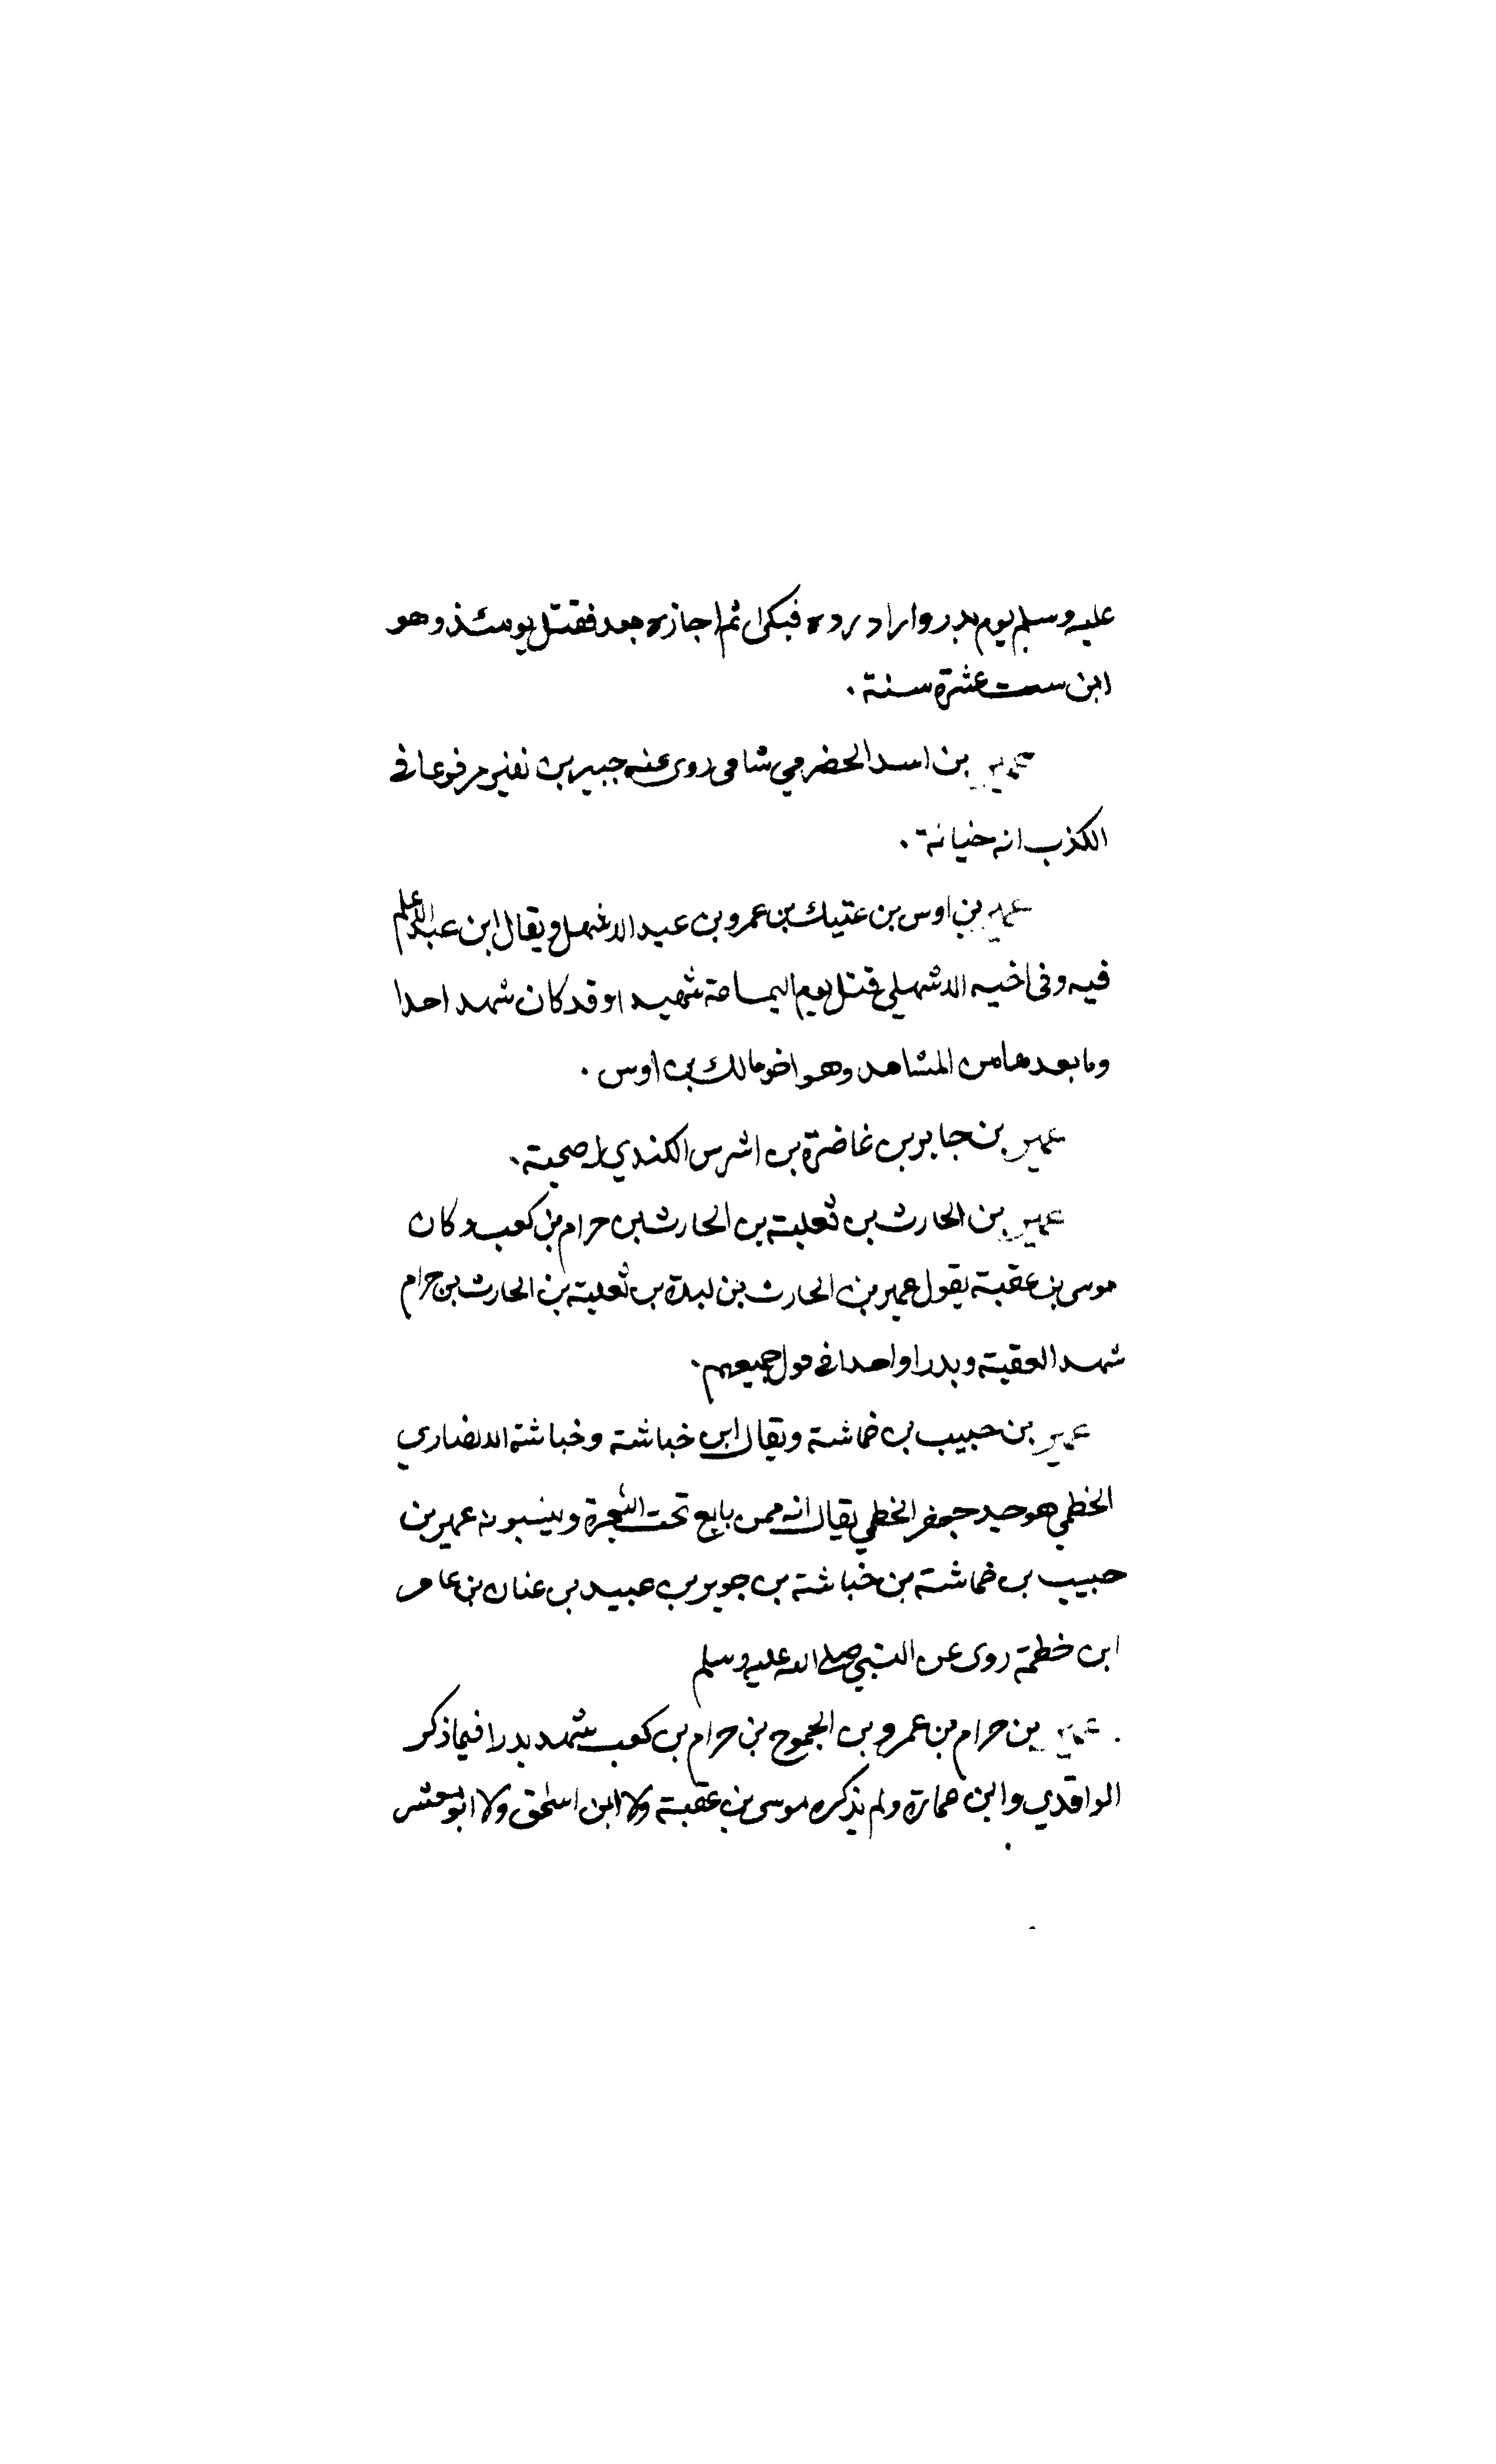 عليه وسلم يوم بدر واراد رده فبكى ثم اجازه بعد فقتل يومئذ وهو
ابن ست عشرة سنة .
عمير بن اسد الحضرمي شامي روى عنه جبير بن نفير مرفوعا في
الكذب انه خيانة .
عمير بن اوس بن عتيك بن عمرو بن عبد الاشهل ويقال ابن عبد الاعلم
فيه وفى اخيه الاشهلي قتل يوم اليمامة شهيدا وقد كان شهد احدا
وما بعدها من المشاهد وهو اخو مالك بن اوس .
عمير بن جابر بن غاضرة بن اشرس الكندي له صحبة .
عمير بن الحارث بن ثعلبة بن الحارث بن حرام بن كعب وكان
موسى بن عقبة يقول عمير بن الحارث بن لبدة بن ثعلبة بن الحارث بن حرام
شهد العقبة وبدرا واحدا في قول جميعهم .
عمير بن حبيب بن خماشة ويقال ابن خباشة وخباشة الانصاري
الخطمي هو جد جعفر الخطمي يقال انه ممن بايع تحت الشجرة وينسبونه عمير بن
حبيب بن خماشة بن خباشة بن جوير بن عبيد بن عنان بن عامر
ابن خطمة روى عن النبي صلى الله عليه وسلم
عمير بن حرام بن عمرو بن الجموح بن حرام بن كعب شهد بدرا فيما ذكر
الواقدي وابن عمارة ولم يذكره موسى بن عقبة ولا ابن اسحق ولا ابو معشر